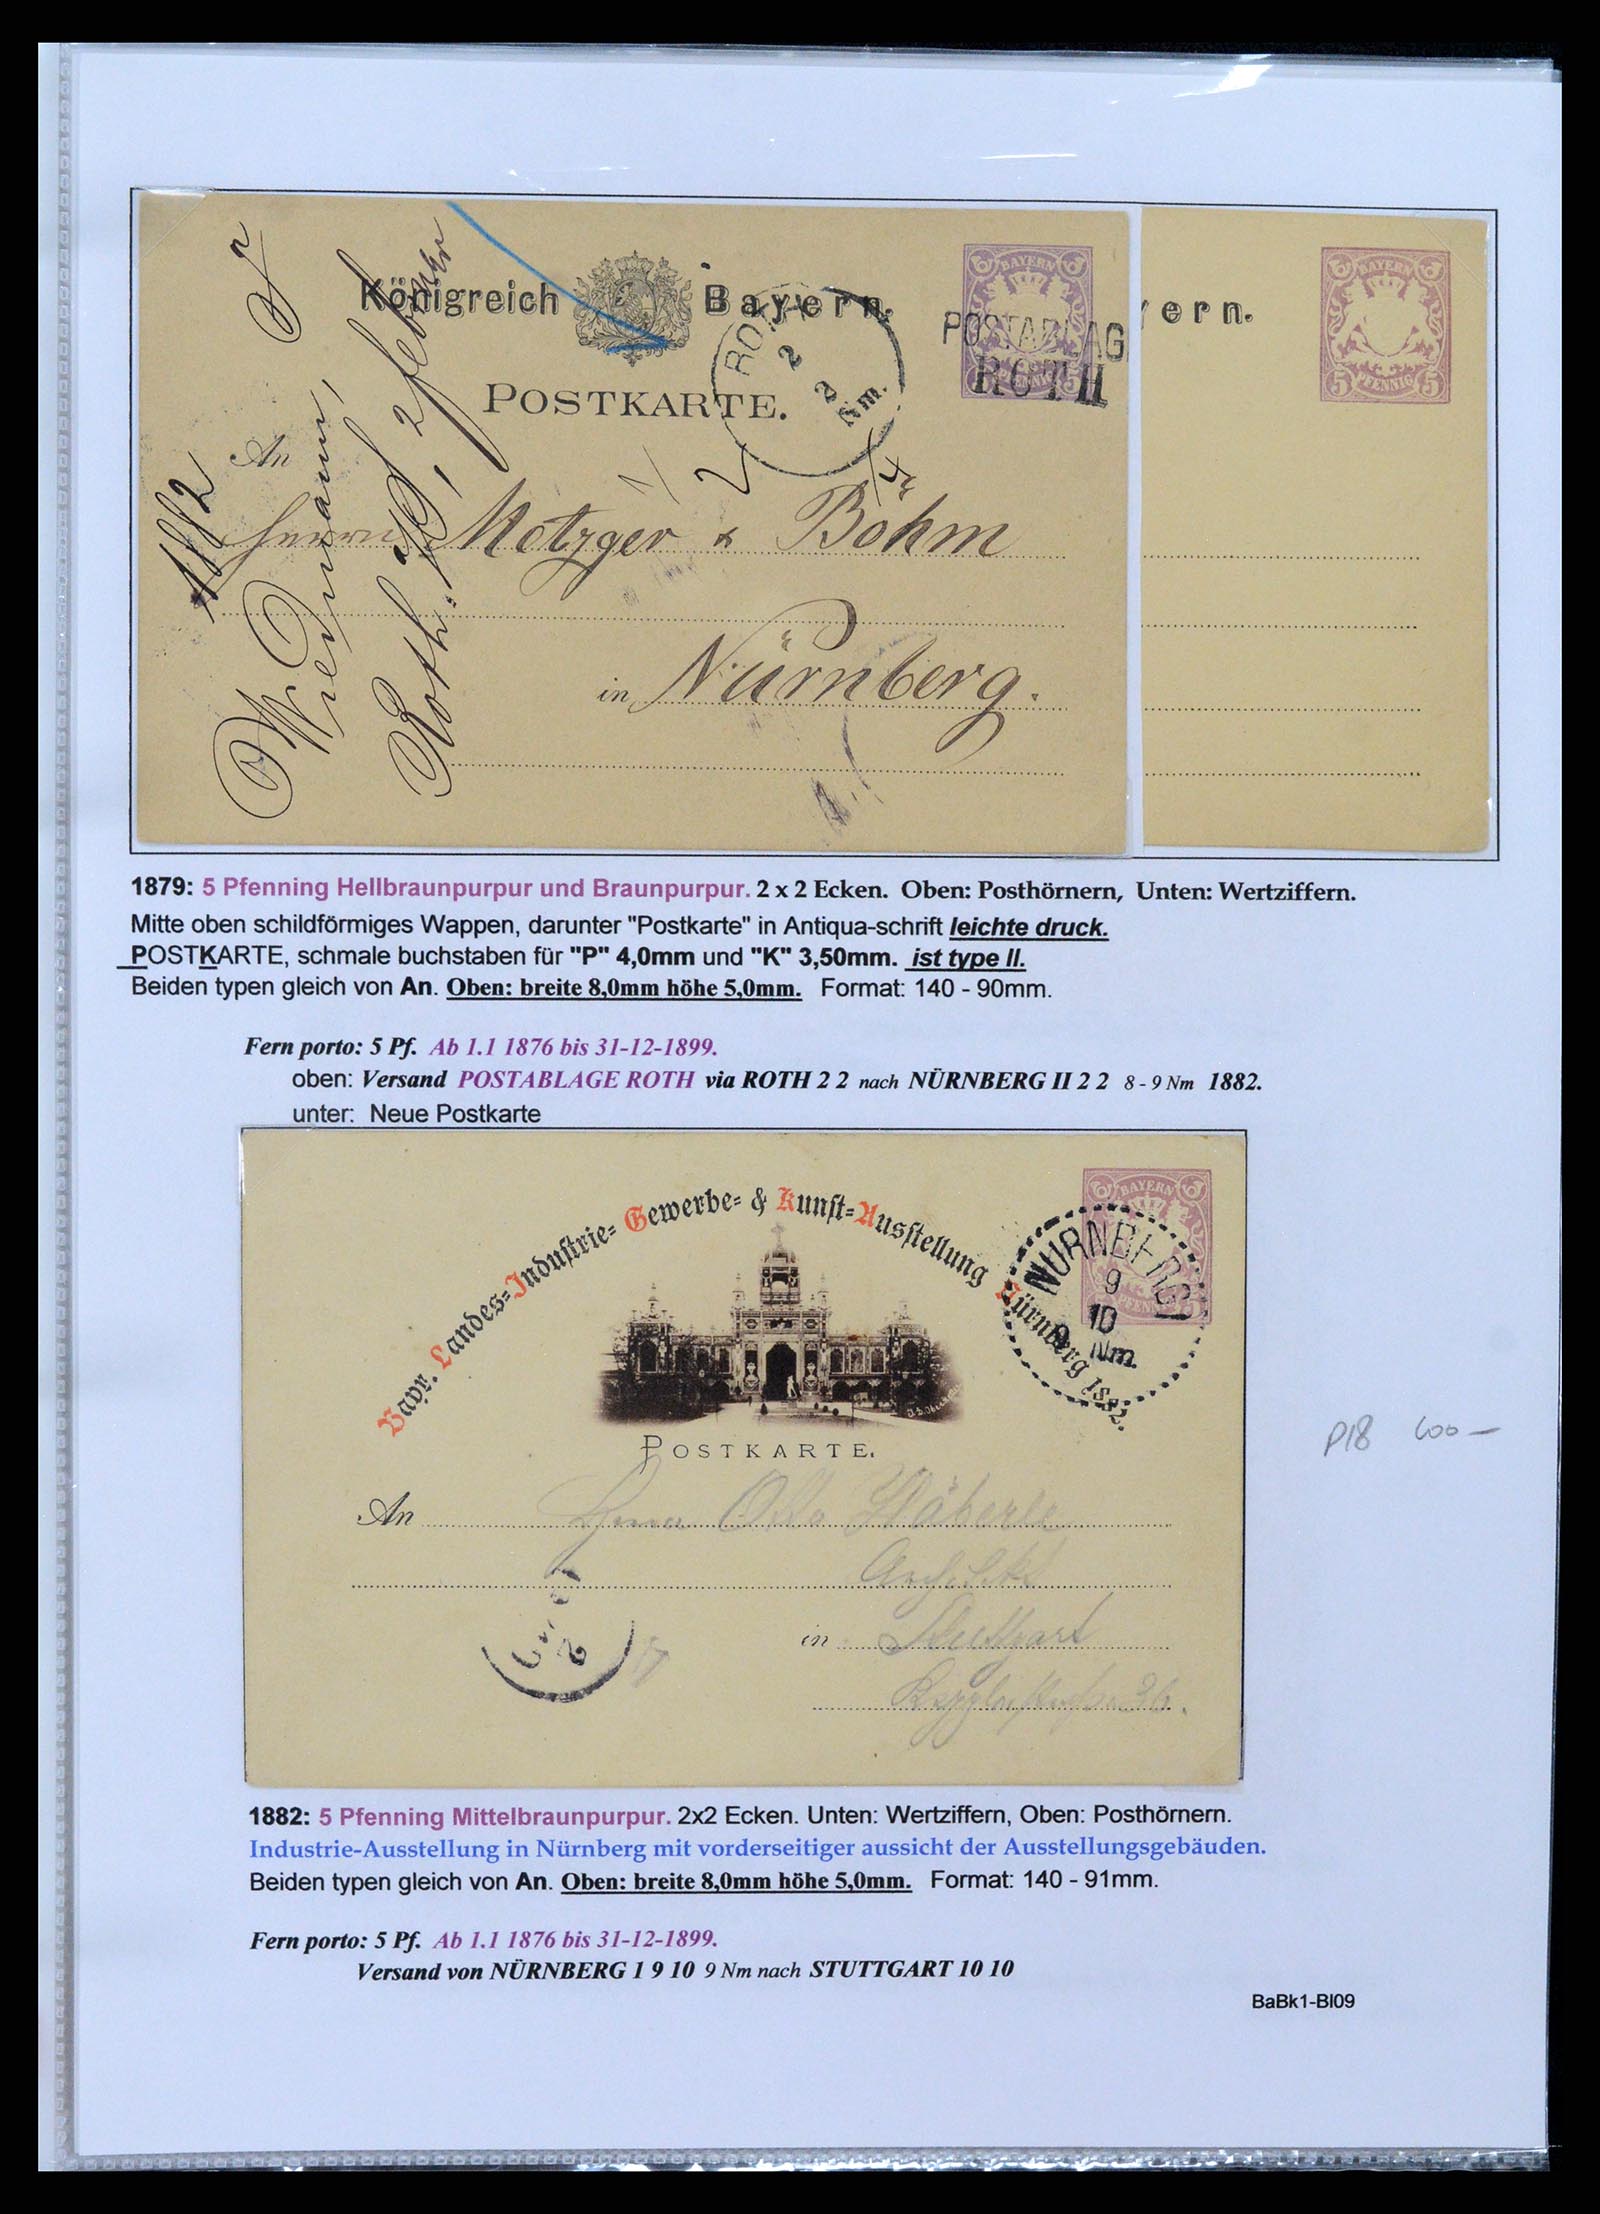 Königreich Bayern.
BAYERN
5 PFENNIG 5
POSTABLAG
ROTH
ROTH
2
2
Nm.
POSTKARTE.
An
Herrn Metzger & Böhm
in Nürnberg.
1882
Wiedmann,
Roth, 2 Februar
ern.
BAYERN
5 PFENNIG 5
1879: 5 Pfenning Hellbraunpurpur und Braunpurpur. 2 x 2 Ecken. Oben: Posthörnern, Unten: Wertziffern.
Mitte oben schildförmiges Wappen, darunter "Postkarte" in Antiqua-schrift leichte druck.
POSTKARTE, schmale buchstaben für "P" 4,0mm und "K" 3,50mm. ist type II.
Beiden typen gleich von An. Oben: breite 8,0mm höhe 5,0mm. Format: 140 - 90mm.
Fern porto: 5 Pf. Ab 1.1 1876 bis 31-12-1899.
oben: Versand POSTABLAGE ROTH via ROTH 2 2 nach NÜRNBERG II 2 2 8 - 9 Nm 1882.
unter: Neue Postkarte
Bayr. Landes=Industrie= Gewerbe= & Kunst=Ausstellung Nürnberg 1882.
BAYERN
PFENNIG
NÜRNBERG
9
10
9 Nm.
POSTKARTE.
An Herrn Otto Häberle
Architekt
in Stuttgart
P18 600 -
1882: 5 Pfenning Mittelbraunpurpur. 2x2 Ecken. Unten: Wertziffern, Oben: Posthörnern.
Industrie-Ausstellung in Nürnberg mit vorderseitiger aussicht der Ausstellungsgebäuden.
Beiden typen gleich von An. Oben: breite 8,0mm höhe 5,0mm. Format: 140 - 91mm.
Fern porto: 5 Pf. Ab 1.1 1876 bis 31-12-1899.
Versand von NÜRNBERG 1 9 10 9 Nm nach STUTTGART 10 10
BaBk1-Bl09